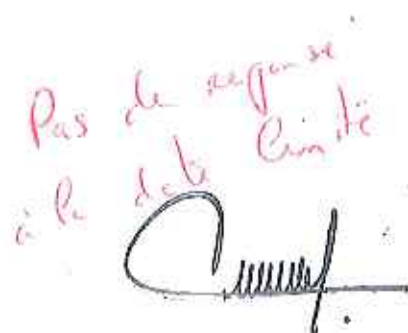 Pas de reponse
à la date limite